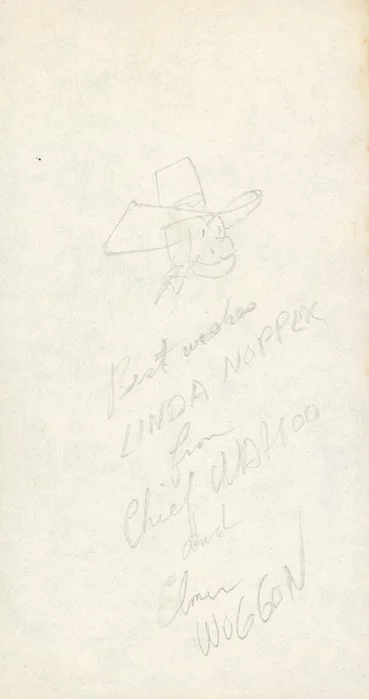 Best wishes
LINDA NOPPEK
from
Chief WAHOO
and
Elmer
WOGGON